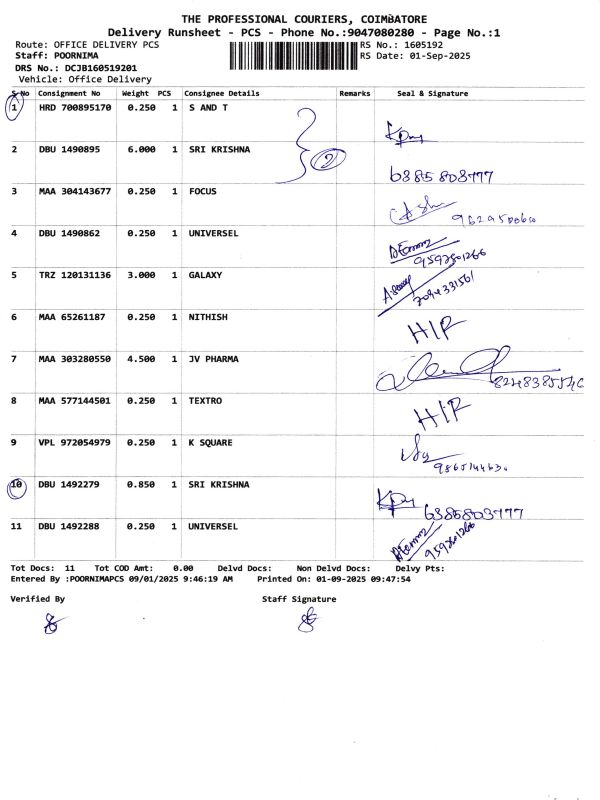 THE PROFESSIONAL COURIERS, COIMBATORE
Delivery Runsheet - PCS - Phone No.:9047080280 - Page No.:1
Route: OFFICE DELIVERY PCS RS No.: 1605192
Staff: POORNIMA RS Date: 01-Sep-2025
DRS No.: DCJB160519201
Vehicle: Office Delivery
S No Consignment No Weight PCS Consignee Details Remarks Seal & Signature
1 HRD 700895170 0.250 1 S AND T
2 DBU 1490895 6.000 1 SRI KRISHNA 2 6385803777
3 MAA 304143677 0.250 1 FOCUS
4 DBU 1490862 0.250 1 UNIVERSEL 9592601266
5 TRZ 120131136 3.000 1 GALAXY
6 MAA 65261187 0.250 1 NITHISH H/R
7 MAA 303280550 4.500 1 JV PHARMA
8 MAA 577144501 0.250 1 TEXTRO H/R
9 VPL 972054979 0.250 1 K SQUARE
10 DBU 1492279 0.850 1 SRI KRISHNA 6385803777
11 DBU 1492288 0.250 1 UNIVERSEL 9592601266
Tot Docs: 11 Tot COD Amt: 0.00 Delvd Docs: Non Delvd Docs: Delvy Pts:
Entered By :POORNIMAPCS 09/01/2025 9:46:19 AM Printed On: 01-09-2025 09:47:54
Verified By Staff Signature